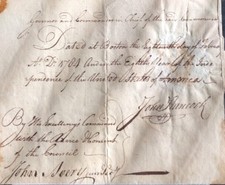 Governor and Commander in Chief of the said Commonwealth
Dated at Boston the Eighteenth day of
A.D. 1784 And in the Eighth Year of the Inde
pendence of the United States of America
John Hancock
By His Excellency's Command
with the Advice & Consent
of the Council
John Avery